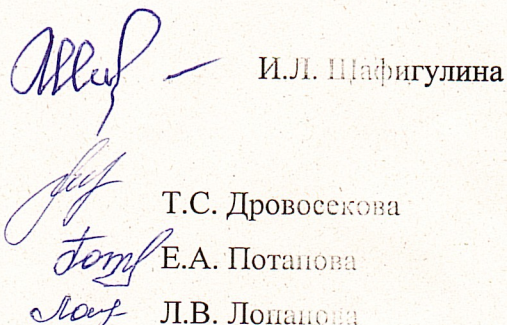 И.Л. Шафигулина
Т.С. Дровосекова
Е.А. Потапова
Л.В. Лопанова